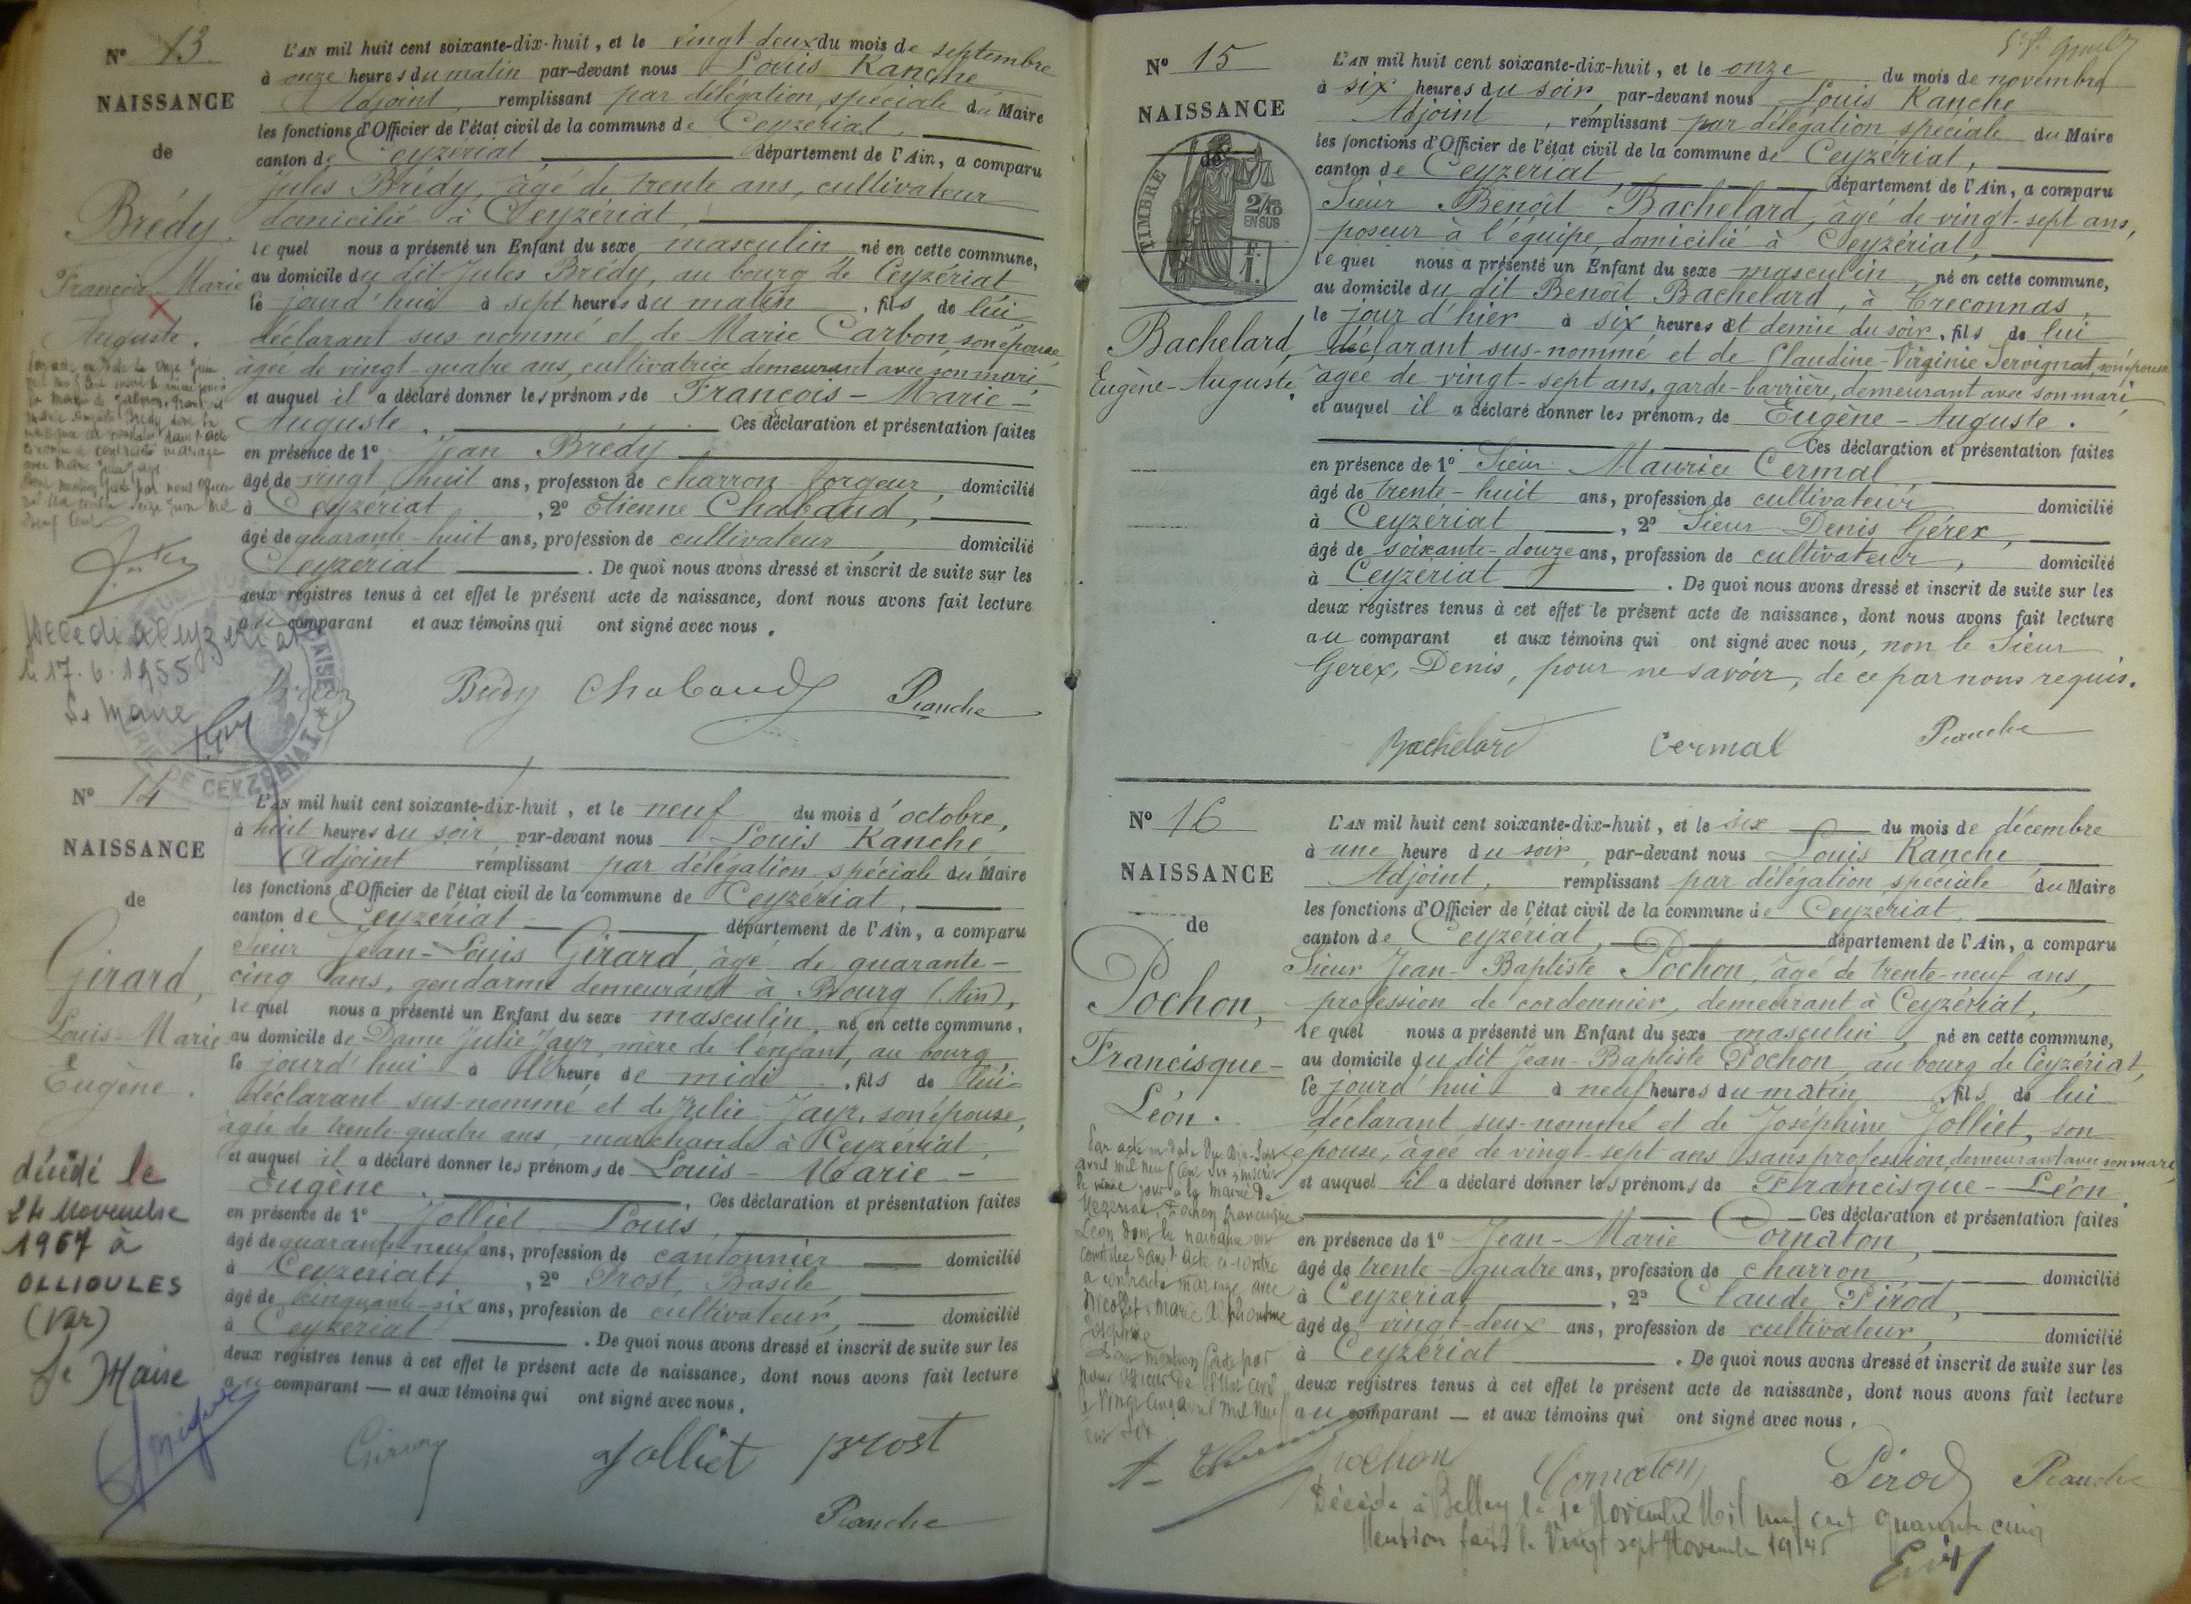 Nº 13
NAISSANCE
de
Brédy
François Marie
Auguste.
L'AN mil huit cent soixante-dix-huit, et le vingt-deux du mois de septembre
à onze heures du matin par-devant nous Louis Ranche
Adjoint, remplissant par délégation spéciale du Maire
les fonctions d'Officier de l'état civil de la commune de Ceyzériat,
canton de Ceyzériat département de l'Ain, a comparu
Jules Brédy, âgé de trente ans, cultivateur
domicilié à Ceyzériat
lequel nous a présenté un Enfant du sexe masculin né en cette commune,
au domicile du dit Jules Brédy, au bourg de Ceyzériat
le jourd'hui à sept heures du matin, fils de lui
déclarant sus nommé et de Marie Carbon, son épouse
âgée de vingt-quatre ans, cultivatrice demeurant avec son mari
et auquel il a déclaré donner les prénoms de François-Marie-
Auguste. Ces déclaration et présentation faites
en présence de 1º Jean Brédy
âgé de vingt huit ans, profession de charron forgeur, domicilié
à Ceyzériat, 2º Etienne Chabaud,
âgé de quarante-huit ans, profession de cultivateur, domicilié
Ceyzériat. De quoi nous avons dressé et inscrit de suite sur les
deux registres tenus à cet effet le présent acte de naissance, dont nous avons fait lecture
au comparant et aux témoins qui ont signé avec nous.
Décédé à Ceyzériat
le 17.6.1955
Le Maire
Brédy Chabaud Ranche
Nº 14
NAISSANCE
de
Girard,
Louis-Marie
Eugène.
L'AN mil huit cent soixante-dix-huit, et le neuf du mois d'octobre,
à huit heures du soir par-devant nous Louis Ranche
Adjoint remplissant par délégation spéciale du Maire
les fonctions d'Officier de l'état civil de la commune de Ceyzériat,
canton de Ceyzériat département de l'Ain, a comparu
Sieur Jean-Louis Girard, âgé de quarante-
cinq ans, gendarme demeurant à Bourg (Ain),
lequel nous a présenté un Enfant du sexe masculin, né en cette commune,
au domicile de Dame Julie Jayr, mère de l'enfant, au bourg
le jourd'hui à heure de midi, fils de lui
déclarant sus-nommé et de Julie Jayr, son épouse,
âgée de trente-quatre ans, marchande à Ceyzériat,
et auquel il a déclaré donner les prénoms de Louis-Marie-
Eugène. Ces déclaration et présentation faites
en présence de 1º Jolliet Louis,
âgé de quarante-neuf ans, profession de cantonnier domicilié
à Ceyzériat, 2º Prost, Basile,
âgé de cinquante-six ans, profession de cultivateur, domicilié
à Ceyzériat. De quoi nous avons dressé et inscrit de suite sur les
deux registres tenus à cet effet le présent acte de naissance, dont nous avons fait lecture
au comparant et aux témoins qui ont signé avec nous.
décédé le
24 Novembre
1967 à
OLLIOULES
(Var)
Le Maire
Girard Jolliet Prost
Ranche
Nº 15
NAISSANCE
de
TIMBRE
2/10
EN SUS
F.
1.
Bachelard,
Eugène-Auguste.
L'AN mil huit cent soixante-dix-huit, et le onze du mois de novembre
à six heures du soir, par-devant nous Louis Ranche
Adjoint, remplissant par délégation spéciale du Maire
les fonctions d'Officier de l'état civil de la commune de Ceyzériat,
canton de Ceyzériat, département de l'Ain, a comparu
Sieur Benoît Bachelard, âgé de vingt-sept ans,
poseur à l'équipe, domicilié à Ceyzériat,
lequel nous a présenté un Enfant du sexe masculin, né en cette commune,
au domicile du dit Benoît Bachelard, à Treconnas,
le jour d'hier à six heures et demie du soir, fils de lui
déclarant sus-nommé et de Claudine-Virginie Servignat, son épouse
âgée de vingt-sept ans, garde-barrière, demeurant avec son mari
et auquel il a déclaré donner les prénoms de Eugène-Auguste.
Ces déclaration et présentation faites
en présence de 1º Sieur Maurice Cermal
âgé de trente-huit ans, profession de cultivateur domicilié
à Ceyzériat, 2º Sieur Denis Gérex,
âgé de soixante-douze ans, profession de cultivateur, domicilié
à Ceyzériat. De quoi nous avons dressé et inscrit de suite sur les
deux registres tenus à cet effet le présent acte de naissance, dont nous avons fait lecture
au comparant et aux témoins qui ont signé avec nous, non le Sieur
Gerex, Denis, pour ne savoir, de ce par nous requis.
Bachelard Cermal Ranche
Nº 16
NAISSANCE
de
Pochon,
Francisque-
Léon.
L'AN mil huit cent soixante-dix-huit, et le six du mois de décembre
à une heure du soir, par-devant nous Louis Ranche
Adjoint, remplissant par délégation spéciale du Maire
les fonctions d'Officier de l'état civil de la commune de Ceyzériat,
canton de Ceyzériat, département de l'Ain, a comparu
Sieur Jean-Baptiste Pochon, âgé de trente-neuf ans,
profession de cordonnier, demeurant à Ceyzériat,
lequel nous a présenté un Enfant du sexe masculin, né en cette commune,
au domicile du dit Jean-Baptiste Pochon, au bourg de Ceyzériat,
le jourd'hui à neuf heures du matin, fils de lui
déclarant sus-nommé et de Joséphine Jolliet, son
épouse, âgée de vingt-sept ans sans profession, demeurant avec son mari,
et auquel il a déclaré donner les prénoms de Francisque-Léon
Ces déclaration et présentation faites
en présence de 1º Jean-Marie Cornaton,
âgé de trente-quatre ans, profession de charron domicilié
à Ceyzériat, 2º Claude Pirod,
âgé de vingt-deux ans, profession de cultivateur, domicilié
à Ceyzériat. De quoi nous avons dressé et inscrit de suite sur les
deux registres tenus à cet effet le présent acte de naissance, dont nous avons fait lecture
au comparant et aux témoins qui ont signé avec nous.
Pochon Cornaton Pirod Ranche
Décédé à Belley le 1e Novembre Mil neuf cent quarante cinq
Mention faite le Vingt sept Novembre 1945